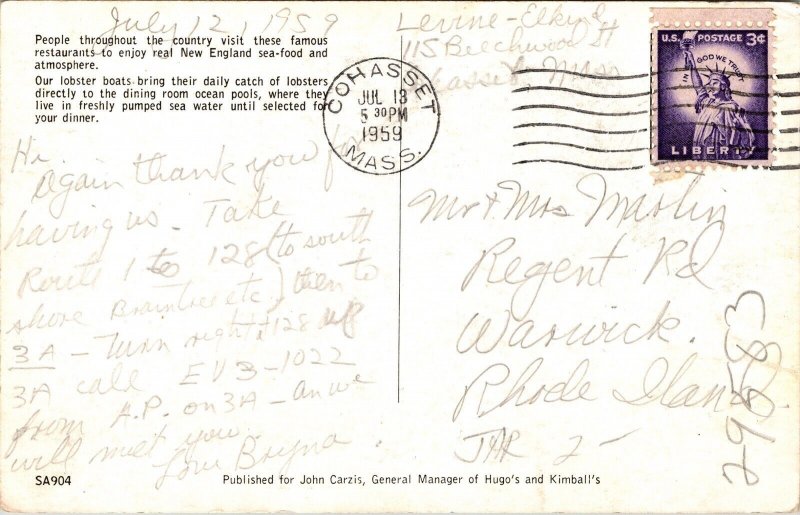 July 12, 1959
People throughout the country visit these famous
restaurants to enjoy real New England sea-food and
atmosphere.
Our lobster boats bring their daily catch of lobsters
directly to the dining room ocean pools, where they
live in freshly pumped sea water until selected for
your dinner.
Levine-Elkind
115 Beechwood St
Cohasset Mass
COHASSET
JUL 13
5 30 PM
1959
MASS.
U.S. POSTAGE 3¢
IN GOD WE TRUST
LIBERTY
Hi.
Again thank you for
having us. Take
Route 1 to 128 (to south
shore Braintree etc.) then to
3A – Turn right 128
3A call EV3-1022
from A.P. on 3A – and we
will meet you.
Love Bryna
Mr + Mrs
Regent Rd
Warwick.
Rhode Island
JAR 2-
29583
SA904
Published for John Carzis, General Manager of Hugo's and Kimball's